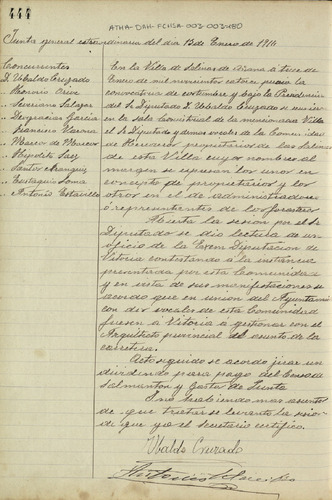 444
ATHA-DAH-FCHSA-003-003-480
Junta general extraordinaria del dia 13 de Enero de 1914
Concurrentes
D. Ubaldo Cruzado
" Honorio Orive
" Severiano Salazar
" Deogracias Garcia
" Francisco
" Marcos de
" Hipolito Saez
" Santos
" Eustaquio Loma
" Antonio
En la Villa de Salinas de Añana á trece de
Enero de mil novecientos catorce previa la
convocatoria de costumbre y bajo la Presidencia
del Sr Diputado D. Ubaldo Cruzado se
en la sala Consistorial de la mencionada Villa
el Sr Diputado y demas vocales de la Comunidad
de Herederos propietarios de las Salinas
de esta Villa cuyos nombres al
margen se espresan los unos en
concepto de propietarios y los
otros en el de administradores
ó representantes de los forasteros
Abierta la sesion por el Sr
Diputado se dió lectura de un
oficio de la Exma Diputacion de
Vitoria contestando á la instancia
presentada por esta Comunidad
y en vista de sus manifestaciones se
acordó que en union del Ayuntami
con dos vocales de esta Comunidad
fuesen á Vitoria a gestionar con el
Arquitecto provincial el asunto de la
carretera.
Acto seguido se acordo jirar un
dividendo para pago del Censo de
Salmanton y gastos de Junta
Y no habiendo mas asuntos
de que tratar se levantó la sesion
de que yo el Secretario certifico.
Ubaldo Cruzado
Antonio